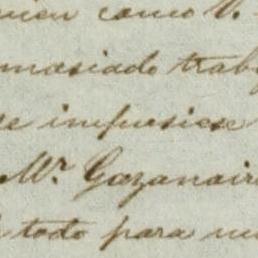 uien como V.
masiado trab
se impusiese
Mr. Gazanair
todo para